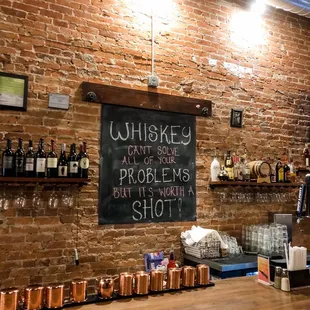 WHISKEY
CAN'T SOLVE
ALL OF YOUR
PROBLEMS
BUT ITS WORTH A
SHOT!